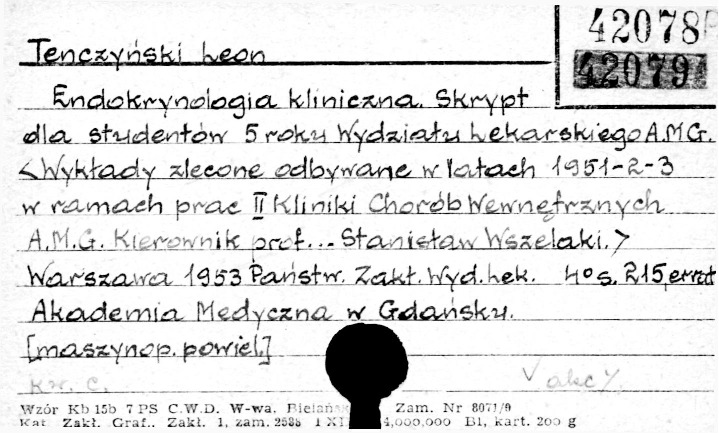 42078
42079
Tenczyński Leon
Endokrynologia kliniczna. Skrypt
dla studentów 5 roku Wydziału Lekarskiego A.M.G.
<Wykłady zlecone odbywane w latach 1951-2-3
w ramach prac II Kliniki Chorób Wewnętrznych
A.M.G. Kierownik prof... Stanisław Wszelaki.>
Warszawa 1953 Państw. Zakł. Wyd. Lek. 4° s. 215, errat
Akademia Medyczna w Gdańsku.
[maszynop. powiel.]
Kw. C.
Wzór Kb 15b 7 PS C.W.D. W-wa, Zam. Nr 8071/9
Kat. Zakł. Graf., Zakł. 1, zam. 2585 4,000,000 B1, kart. 200 g